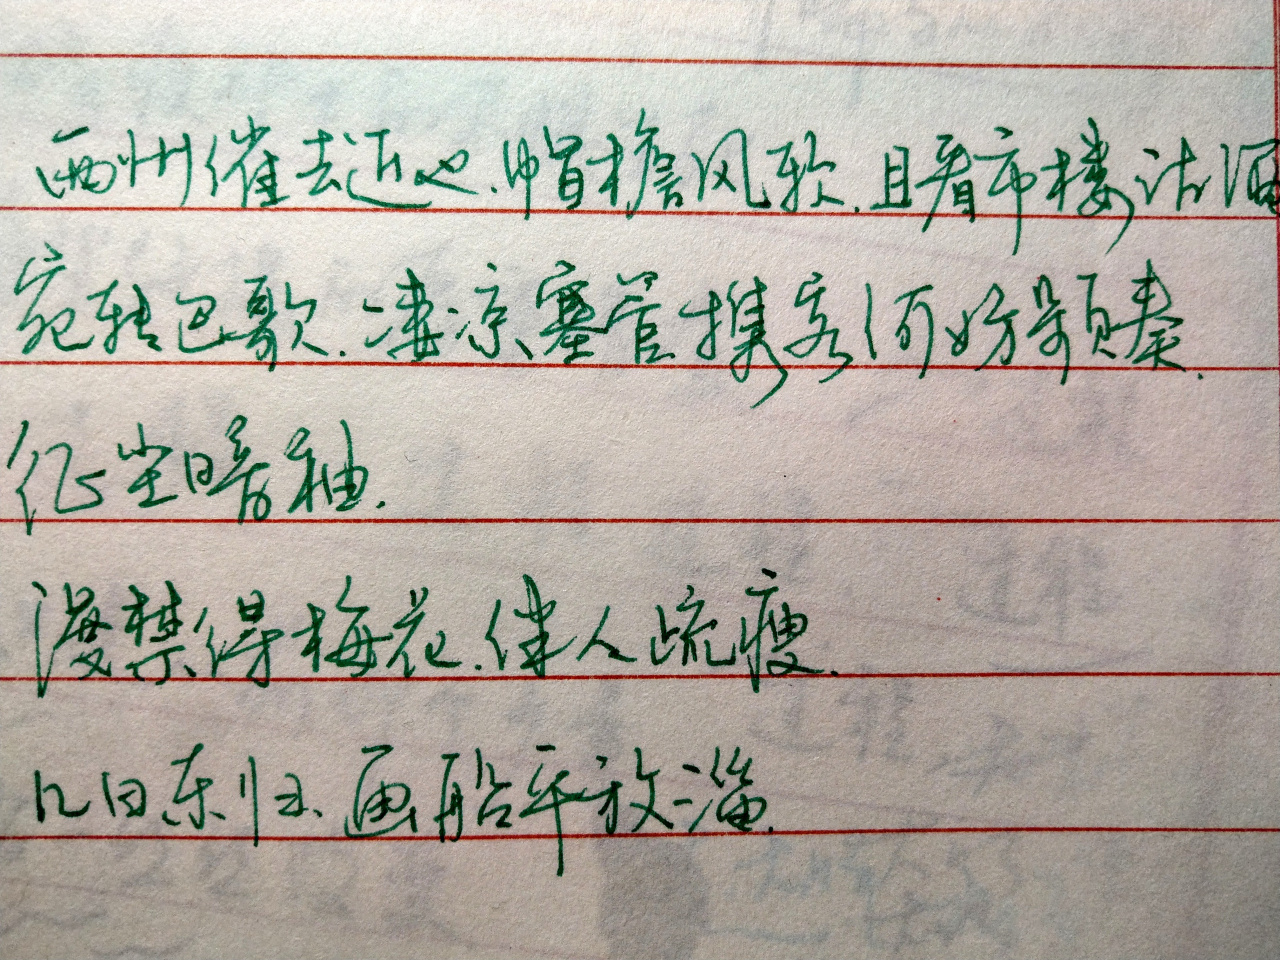 西州催去近也.帽檐风软.且看市楼沽酒
宛转巴歌.凄凉塞管携客何妨频奏.
征尘暗袖.
漫禁得梅花.伴人疏瘦.
几日东归.画船平放溜.